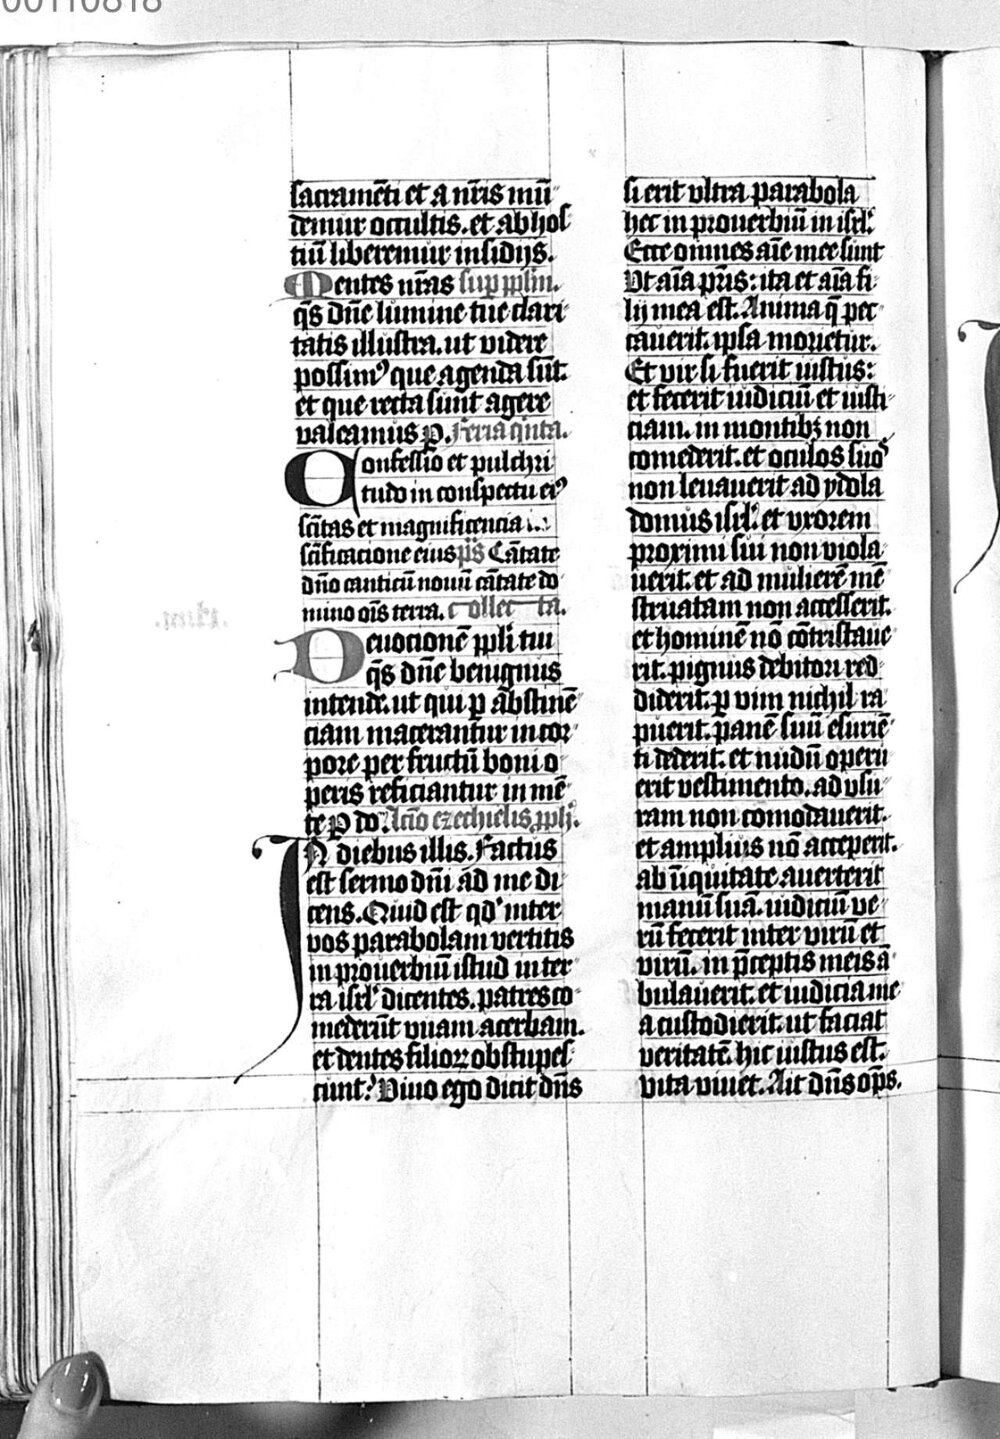 00110818
sacramēti et a nr̄is mū
demur occultis. et ab hos
tiū liberemur insidijs.
Mentes nr̄as sup pplm̄.
qs̄ dn̄e lumine tue clari
tatis illustra. ut videre
possimꝰ que agenda sūt.
et que recta sunt agere
valeamus ꝑ. Feria qͥnta.
Confessio et pulchri
tudo in conspectu eiꝰ
sc̄itas et magnificencia i..
sc̄ificacione eius ps̄ Cātate
dn̄o canticū nouū cātate do
mino oīs terra. Collecta.
Deuocionē ppli tui
qs̄ dn̄e benignus
intende. ut qui ꝑ abstinē
ciam macerantur in cor
pore per fructū boni o
peris reficiantur in mē
te ꝑ do. Lcīo ezechielis ꝓph̄.
In diebus illis. Factus
est sermo dn̄i ad me di
cens. Quid est qdˈ inter
vos parabolam vertitis
in prouerbiū istud in ter
ra isrl̄ˈ dicentes. patres co
mederūt vuam acerbam.
et dentes filioꝝ obstupes
cunt? Viuo ego dicit dn̄s
si erit vltra parabola
hec in prouerbiū in isrl̄ˈ.
Ecce omnes aīe mee sunt
Vt aīa pr̄is: ita et aīa fi
lij mea est. Anima q̄ pec
cauerit. ipsa morietur.
Et vir si fuerit iustus:
et fecerit iudiciū et iusti
ciam. in montibꝫ non
comederit. et oculos suoˢ
non leuauerit ad ydola
domus isrl̄ˈ. et vxorem
proximi sui non viola
uerit. et ad mulierē mē
struatam non accesserit.
et hominē nō cōtristaue
rit. pignus debitori red
diderit. ꝑ vim nichil ra
puerit. panē suū esuriē
ti dederit. et nudū operu
erit vestimento. ad vsu
ram non comodauerit.
et amplius nō acceperit.
ab īiquitate auerterit
manū suā. iudiciū ve
rū fecerit inter virū et
virū. in p̄ceptis meis ā
bulauerit. et iudicia me
a custodierit. ut faciat
veritatē. hic iustus est.
vita viuet. Ait dn̄s ops̄.